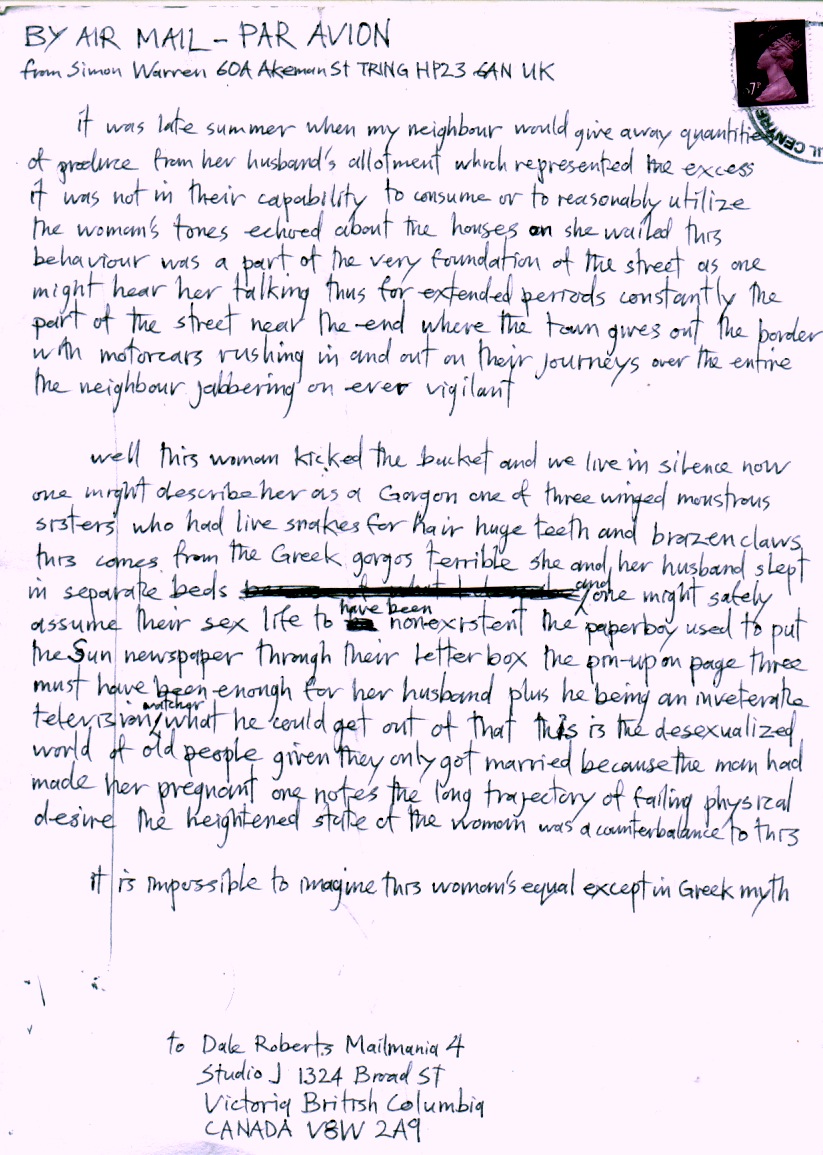 BY AIR MAIL – PAR AVION
from Simon Warren 60A Akeman St TRING HP23 6AN UK
it was late summer when my neighbour would give away quantities
of produce from her husband's allotment which represented the excess
it was not in their capability to consume or to reasonably utilize
the woman's tones echoed about the houses on she wailed this
behaviour was a part of the very foundation of the street as one
might hear her talking thus for extended periods constantly the
part of the street near the end where the town gives out the border
with motorcars rushing in and out on their journeys over the entire
the neighbour jabbering on ever vigilant
well this woman kicked the bucket and we live in silence now
one might describe her as a Gorgon one of three winged monstrous
sisters who had live snakes for hair huge teeth and brazen claws
this comes from the Greek gorgos terrible she and her husband slept
in separate beds and one might safely
assume their sex life to have been nonexistent the paperboy used to put
the Sun newspaper through their letterbox the pin-up on page three
must have been enough for her husband plus he being an inveterate
television watcher what he could get out of that this is the desexualized
world of old people given they only got married because the man had
made her pregnant one notes the long trajectory of failing physical
desire the heightened state of the woman was a counterbalance to this
it is impossible to imagine this woman's equal except in Greek myth
to Dale Roberts Mailmania 4
Studio J 1324 Broad St
Victoria British Columbia
CANADA V8W 2A9